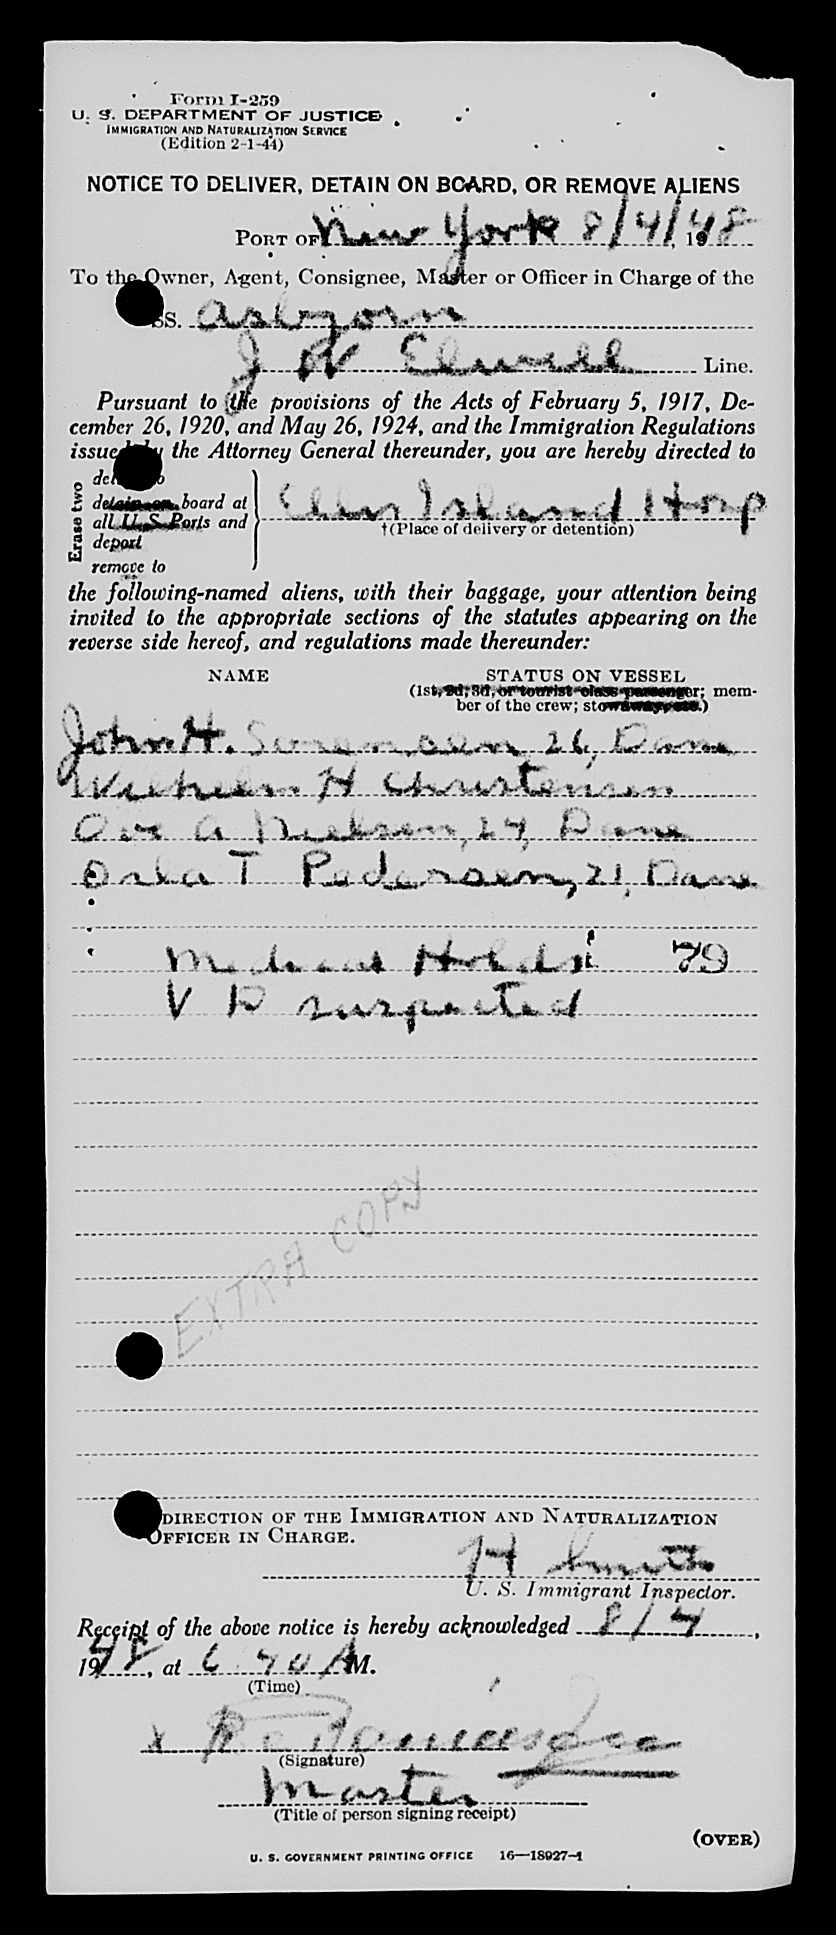 Form I-259
U. S. DEPARTMENT OF JUSTICE
IMMIGRATION AND NATURALIZATION SERVICE
(Edition 2-1-44)
NOTICE TO DELIVER, DETAIN ON BOARD, OR REMOVE ALIENS
PORT OF New York 8/4/48, 19
To the Owner, Agent, Consignee, Master or Officer in Charge of the
SS. Asbjorn
J W Elwell Line.
Pursuant to the provisions of the Acts of February 5, 1917, De-
cember 26, 1920, and May 26, 1924, and the Immigration Regulations
issued by the Attorney General thereunder, you are hereby directed to
Erase two
detain on board at
all U.S. Ports and
deport
remove to
Ellis Island Hosp
†(Place of delivery or detention)
the following-named aliens, with their baggage, your attention being
invited to the appropriate sections of the statutes appearing on the
reverse side hereof, and regulations made thereunder:
NAME STATUS ON VESSEL
(1st, 2d, 3d, or tourist class passenger; mem-
ber of the crew; stowaway, etc.)
John H. Sorensen, 26, Dane
Wilhelm H Christensen
Ove A Nielsen, 24, Dane
Orla T Pedersen, 21, Dane
Medical Holds 79
V D suspected
EXTRA COPY
DIRECTION OF THE IMMIGRATION AND NATURALIZATION
OFFICER IN CHARGE.
H Smith
U. S. Immigrant Inspector.
Receipt of the above notice is hereby acknowledged 8/4,
1948, at 6 40 AM.
(Time)
x
(Signature)
Master
(Title of person signing receipt)
(OVER)
U. S. GOVERNMENT PRINTING OFFICE 16—18927-1